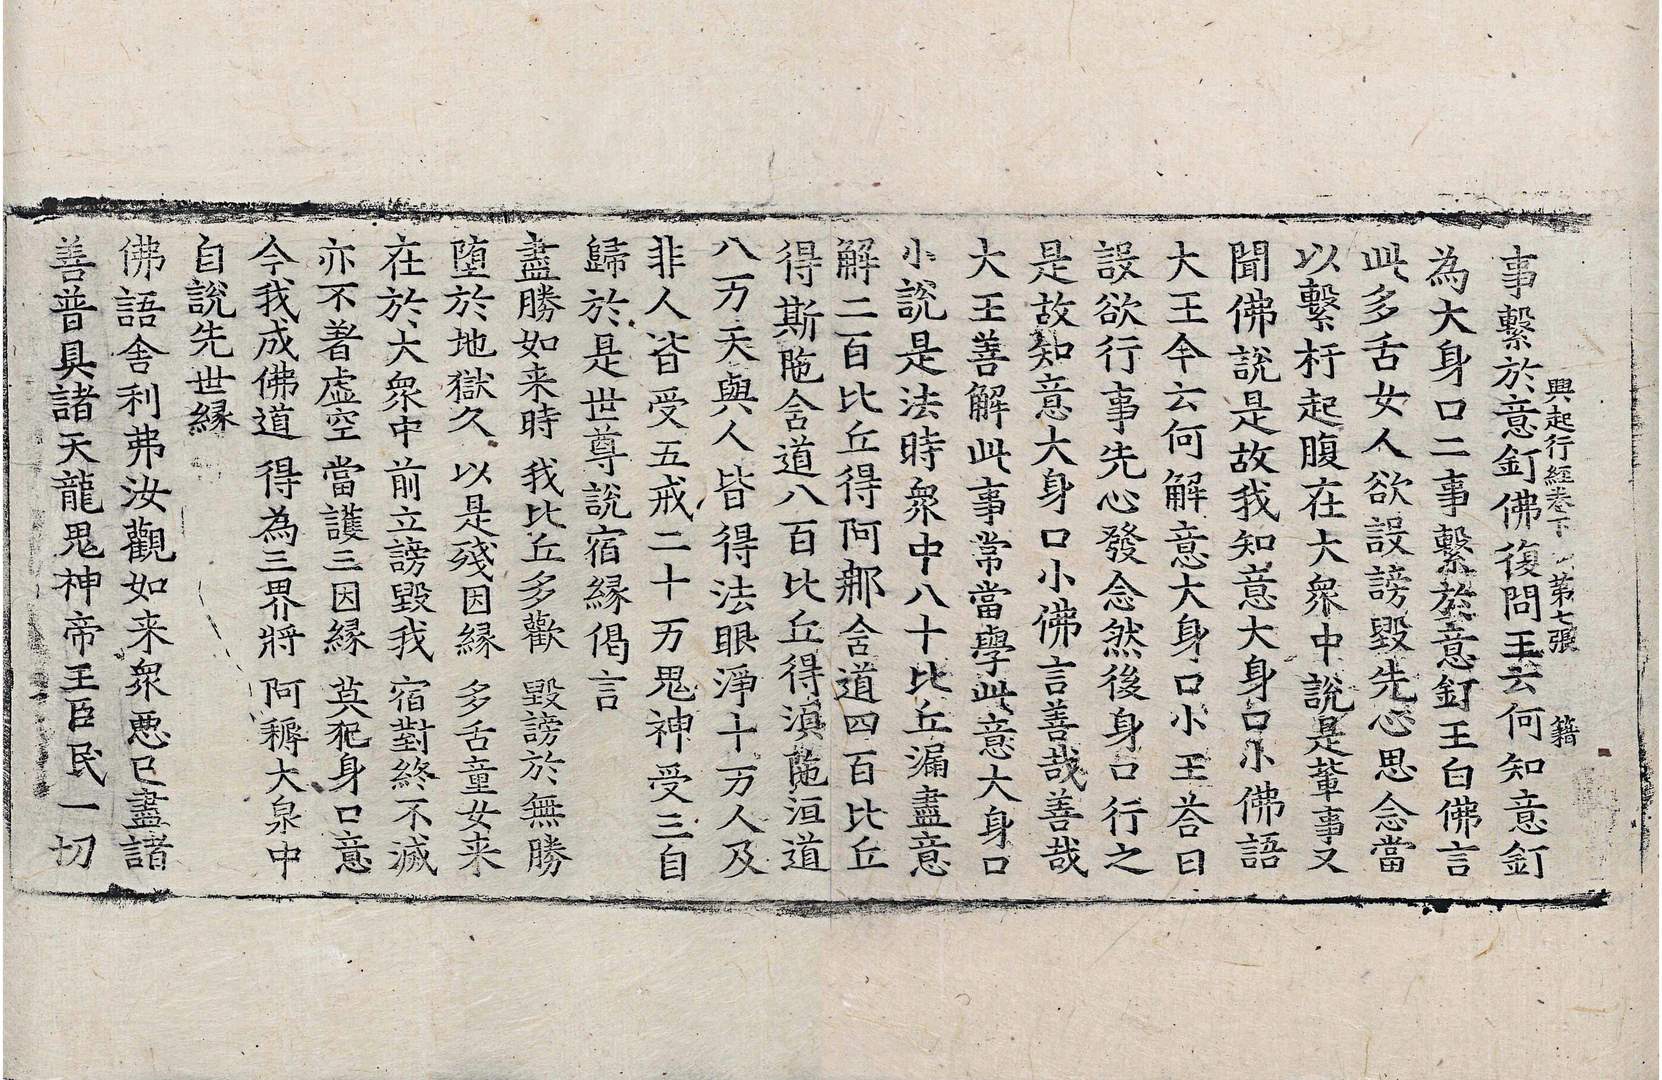 興起行經卷下 第七張 籍
事繫於意釘佛復問王云何知意釘
為大身口二事繫於意釘王白佛言
此多舌女人欲設謗毀先心思念當
以繫杅起腹在大衆中說是輩事又
聞佛說是故我知意大身口小佛語
大王今云何解意大身口小王荅曰
設欲行事先心發念然後身口行之
是故知意大身口小佛言善哉善哉
大王善解此事常當學此意大身口
小說是法時衆中八十比丘漏盡意
解二百比丘得阿那含道四百比丘
得斯陁含道八百比丘得湏陁洹道
八万天與人皆得法眼淨十万人及
非人皆受五戒二十万鬼神受三自
歸於是世尊說宿縁偈言
盡勝如来時 我比丘多歡 毀謗於無勝
墮於地獄久 以是殘因縁 多舌童女来
在於大衆中 前立謗毀我 宿對終不滅
亦不著虛空 當護三因縁 莫犯身口意
今我成佛道 得為三界將 阿耨大泉中
自說先世縁
佛語舍利弗汝觀如来衆惡已盡諸
善普具諸天龍鬼神帝王臣民一切